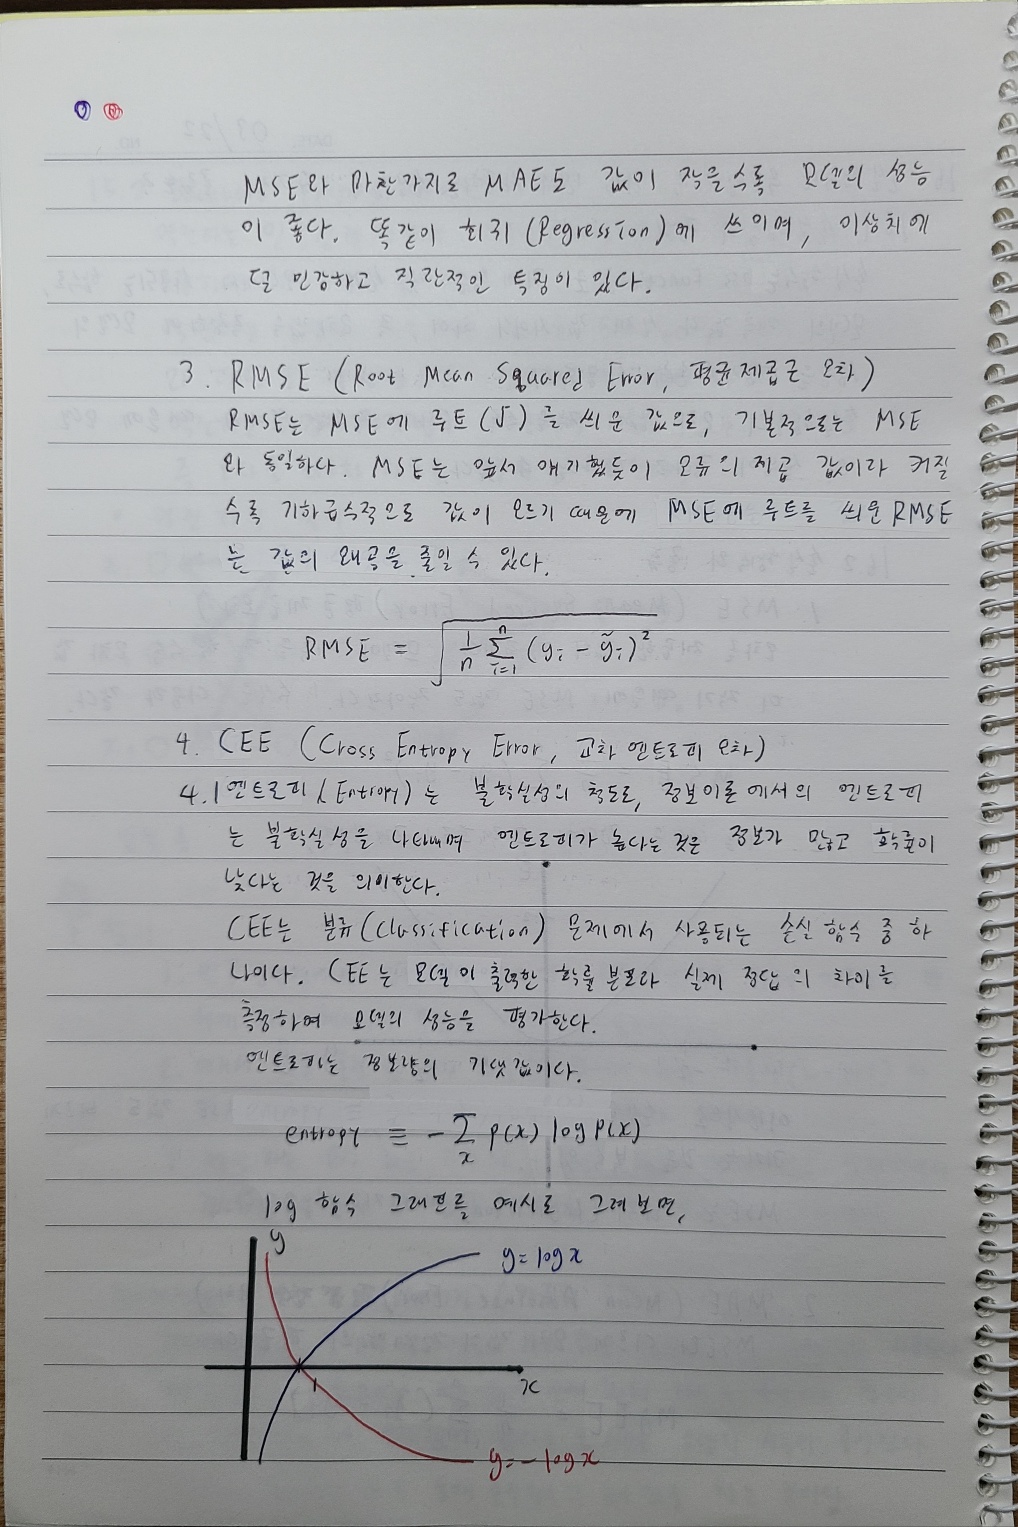 MSE와 마찬가지로 MAE도 값이 작을수록 모델의 성능
이 좋다. 똑같이 회귀 (Regression)에 쓰이며, 이상치에
덜 민감하고 직관적인 특징이 있다.
3. RMSE (Root Mean Squared Error, 평균제곱근 오차)
RMSE는 MSE에 루트(√)를 씌운 값으로, 기본적으로는 MSE
와 동일하다. MSE는 앞서 얘기했듯이 오류의 제곱 값이라 커질
수록 기하급수적으로 값이 오르기 때문에 MSE에 루트를 씌운 RMSE
는 값의 왜곡을 줄일 수 있다.
RMSE = √(1/n Σ_{i=1}^{n} (yi - ỹi)²)
4. CEE (Cross Entropy Error, 교차 엔트로피 오차)
4.1 엔트로피(Entropy)는 불확실성의 척도로, 정보이론에서의 엔트로피
는 불확실성을 나타내며 엔트로피가 높다는 것은 정보가 많고 확률이
낮다는 것을 의미한다.
CEE는 분류(Classification) 문제에서 사용되는 손실 함수 중 하
나이다. CEE는 모델이 출력한 확률 분포와 실제 정답의 차이를
측정하며 모델의 성능을 평가한다.
엔트로피는 정보량의 기댓값이다.
entropy = -Σ_x p(x) log p(x)
log 함수 그래프를 예시로 그려보면,
y
y=logx
1
x
y=-logx